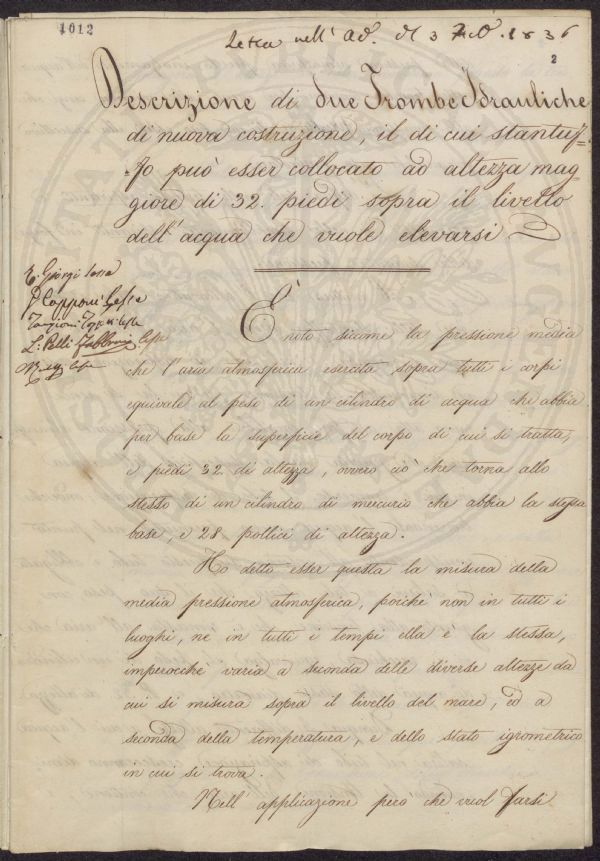 1012
Letta nell' Ad. del 3 Feb. 1836
2
Descrizione di due Trombe Idrauliche
di nuova costruzione, il di cui stantuf=
fo può esser collocato ad altezza mag=
giore di 32. piedi sopra il livello
dell'acqua che vuole elevarsi
E. Giorgi
G Capponi
L: Pelli Fabbroni
È noto siccome la pressione media
che l'aria atmosferica esercita sopra tutti i corpi
equivale al peso di un cilindro di acqua che abbia
per base la superficie del corpo di cui si tratta,
e piedi 32. di altezza, ovvero ciò che torna allo
stesso di un cilindro di mercurio che abbia la stessa
base, e 28 pollici di altezza.
Ho detto esser questa la misura della
media pressione atmosferica, poichè non in tutti i
luoghi, ne in tutti i tempi ella è la stessa,
imperocchè varia a seconda delle diverse altezze da
cui si misura sopra il livello del mare, ed a
seconda della temperatura, e dello stato igrometrico
in cui si trova.
Nell' applicazione però che vuol farsi